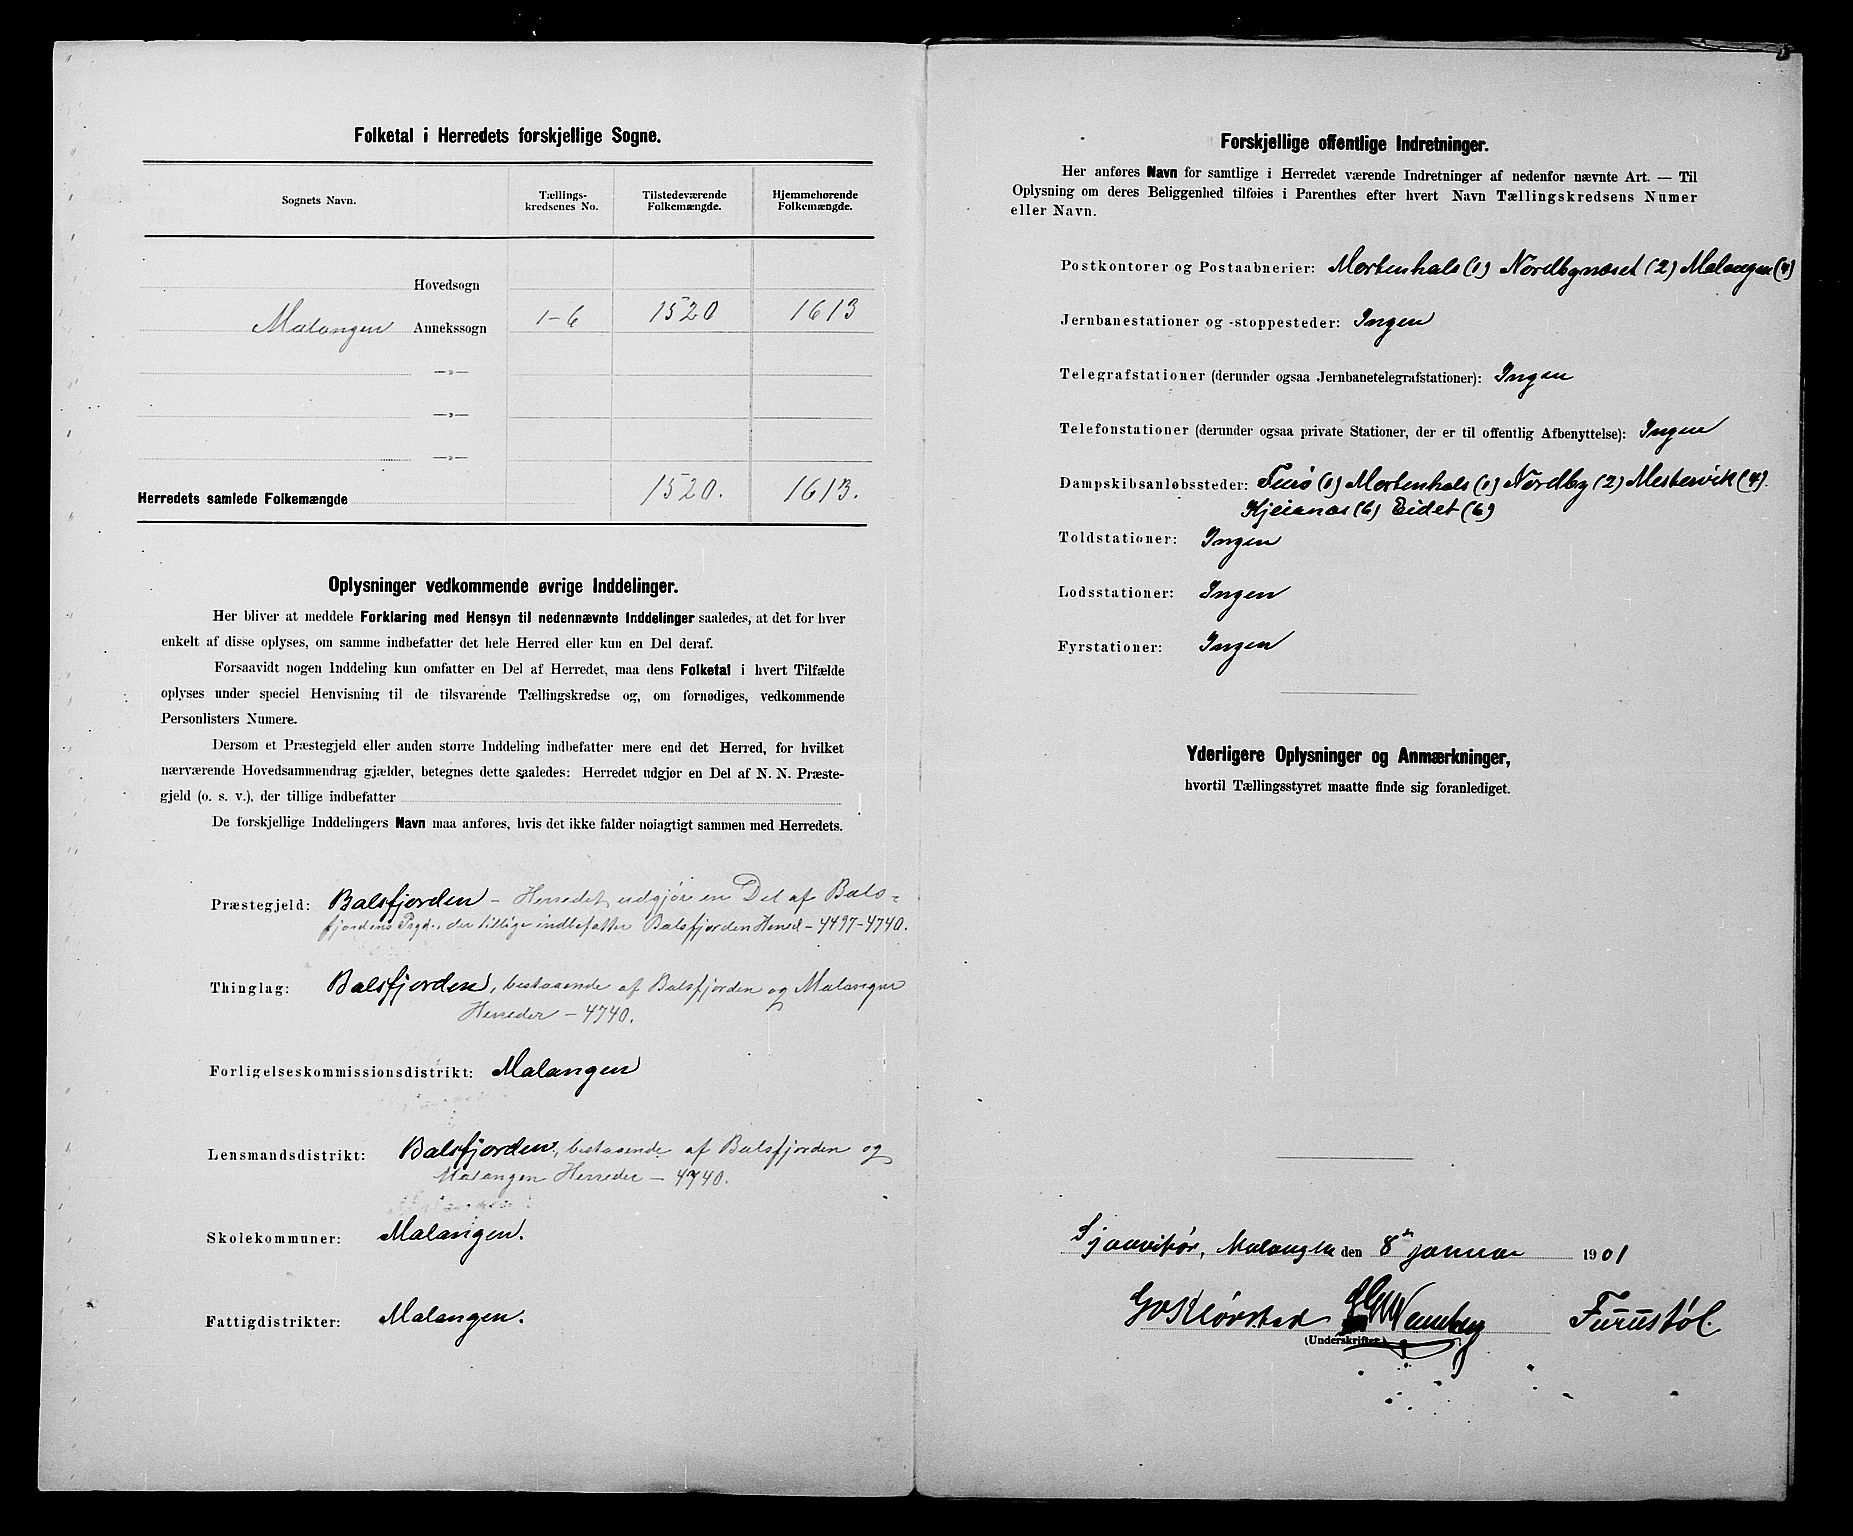 Folketal i Herredets forskjellige Sogne.
Sognets Navn.
Tællings-
kredsenes No.
Tilstedeværende
Folkemængde.
Hjemmehørende
Folkemængde.
Hovedsogn
Malangen Annekssogn 1-6 1520 1613
—„—
—„—
—„—
Herredets samlede Folkemængde 1520. 1613.
Oplysninger vedkommende øvrige Inddelinger.
Her bliver at meddele Forklaring med Hensyn til nedennævnte Inddelinger saaledes, at det for hver
enkelt af disse oplyses, om samme indbefatter det hele Herred eller kun en Del deraf.
Forsaavidt nogen Inddeling kun omfatter en Del af Herredet, maa dens Folketal i hvert Tilfælde
oplyses under speciel Henvisning til de tilsvarende Tællingskredse og, om fornødiges, vedkommende
Personlisters Numere.
Dersom et Præstegjeld eller anden større Inddeling indbefatter mere end det Herred, for hvilket
nærværende Hovedsammendrag gjælder, betegnes dette saaledes: Herredet udgjør en Del af N. N. Præste-
gjeld (o. s. v.), der tillige indbefatter
De forskjellige Inddelingers Navn maa anføres, hvis det ikke falder nøiagtigt sammen med Herredets.
Præstegjeld: Balsfjorden - Herredet udgjør en Del af Bals-
fjordens Prgd., der tillige indbefatter Balsfjorden Herred - 4497-4740.
Thinglag: Balsfjorden, bestaaende af Balsfjorden og Malangen
Herreder - 4740.
Forligelseskommissionsdistrikt: Malangen
Lensmandsdistrikt: Balsfjorden, bestaaende af Balsfjorden og
Malangen Herreder - 4740.
Skolekommuner: Malangen.
Fattigdistrikter: Malangen.
Forskjellige offentlige Indretninger.
Her anføres Navn for samtlige i Herredet værende Indretninger af nedenfor nævnte Art. — Til
Oplysning om deres Beliggenhed tilføies i Parenthes efter hvert Navn Tællingskredsens Numer
eller Navn.
Postkontorer og Postaabnerier: Mortenhals (1) Nordbynæset (2) Malangen (4)
Jernbanestationer og -stoppesteder: Ingen
Telegrafstationer (derunder ogsaa Jernbanetelegrafstationer): Ingen
Telefonstationer (derunder ogsaa private Stationer, der er til offentlig Afbenyttelse): Ingen
Dampskibsanløbssteder: (1) Mortenhals (1) Nordby (2) Mestervik (4).
Kjeianæs (6) Eidet (6)
Toldstationer: Ingen
Lodsstationer: Ingen
Fyrstationer: Ingen
Yderligere Oplysninger og Anmærkninger,
hvortil Tællingsstyret maatte finde sig foranlediget.
Malangen den 8de januar 1901
(Underskrifter.) Furustøl.